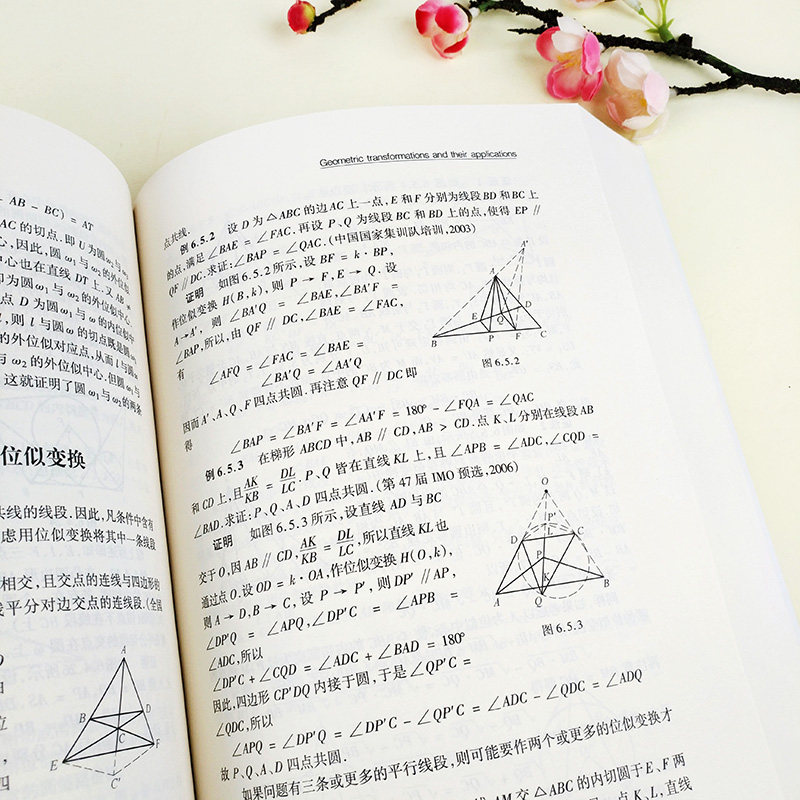 - AB - BC) = AT
AC 的切点. 即 U 为圆ω₁与ω₃
心, 因此, 圆 ω₁ 与 ω₂ 的外位似
中心也在直线 DT 上. 又 AB =
即为圆 ω₁ 与 ω 的外位似中心.
点 D 为圆 ω₁ 与 ω 的内位似中
, 则 l 与圆 ω 的切点既是圆 ω₁
的外位似对应点, 从而 l 与圆
与 ω₂ 的外位似中心. 但圆 ω₁ 与
. 这就证明了圆 ω₁ 与 ω₂ 的两条
位似变换
共线的线段. 因此, 凡条件中含有
虑用位似变换将其中一条线段
相交, 且交点的连线与四边形的
线平分对边交点的连线段. (全国
A
B
D
C
E
F
C'
Geometric transformations and their applications
点共线.
例 6.5.2 设 D 为 △ABC 的边 AC 上一点, E 和 F 分别为线段 BD 和 BC 上
的点, 满足 ∠BAE = ∠FAC. 再设 P、Q 为线段 BC 和 BD 上的点, 使得 EP ∥
QF ∥ DC. 求证: ∠BAP = ∠QAC. (中国国家集训队培训, 2003)
证明 如图 6.5.2 所示, 设 BF = k · BP,
作位似变换 H(B, k), 则 P → F, E → Q. 设
A → A', 则 ∠BA'Q = ∠BAE, ∠BA'F =
∠BAP, 所以, 由 QF ∥ DC, ∠BAE = ∠FAC,
有
∠AFQ = ∠FAC = ∠BAE =
∠BA'Q = ∠AA'Q
因而 A'、A、Q、F 四点共圆. 再注意 QF ∥ DC 即
得
∠BAP = ∠BA'F = ∠AA'F = 180° - ∠FQA = ∠QAC
A'
A
E
Q
D
B
P
F
C
图 6.5.2
例 6.5.3 在梯形 ABCD 中, AB ∥ CD, AB > CD. 点 K、L 分别在线段 AB
和 CD 上, 且 AK/KB = DL/LC. P、Q 皆在直线 KL 上, 且 ∠APB = ∠ADC, ∠CQD =
∠BAD. 求证: P、Q、A、D 四点共圆. (第 47 届 IMO 预选, 2006)
证明 如图 6.5.3 所示, 设直线 AD 与 BC
交于 O, 因 AB ∥ CD, AK/KB = DL/LC, 所以直线 KL 也
通过点 O. 设 OD = k · OA, 作位似变换 H(O, k),
则 A → D, B → C, 设 P → P', 则 DP' ∥ AP,
∠DP'Q = ∠APQ, ∠DP'C = ∠APB =
∠ADC, 所以
∠DP'C + ∠CQD = ∠ADC + ∠BAD = 180°
因此, 四边形 CP'DQ 内接于圆, 于是 ∠QP'C =
∠QDC, 所以
∠APQ = ∠DP'Q = ∠DP'C - ∠QP'C = ∠ADC - ∠QDC = ∠ADQ
故 P、Q、A、D 四点共圆.
O
P'
D
L
C
P
K
A
Q
B
图 6.5.3
如果问题有三条或更多的平行线段, 则可能要作两个或更多的位似变换才
AM 交 △ABC 的内切圆于 E、F 两
点 K、L, 直线